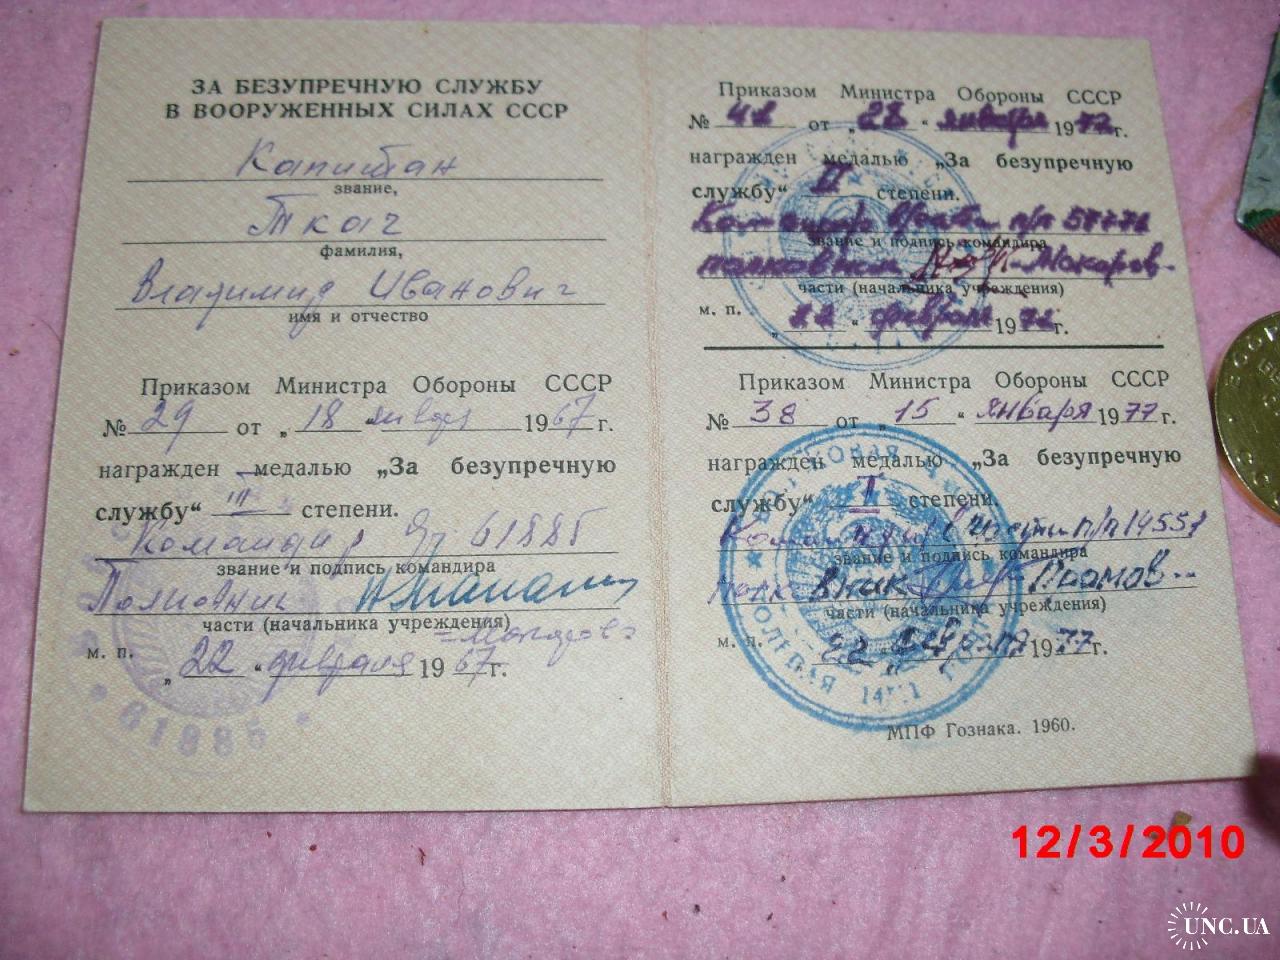 ЗА БЕЗУПРЕЧНУЮ СЛУЖБУ
В ВООРУЖЕННЫХ СИЛАХ СССР
Капитан
звание,
Ткач
фамилия,
Владимир Иванович
имя и отчество
Приказом Министра Обороны СССР
№ 29 от „18 января 1967 г.
награжден медалью „За безупречную
службу“ III степени.
Командир 61885
звание и подпись командира
Полковник
части (начальника учреждения)
м. п. „22“ февраля 1967 г.
61885
Приказом Министра Обороны СССР
№ 42 от „28“ января 1972 г.
награжден медалью „За безупречную
службу“ II степени.
Командир части п/п 57772
звание и подпись командира
полковник
части (начальника учреждения)
м. п. „22“ февраля 1972 г.
Приказом Министра Обороны СССР
№ 38 от „15“ января 1977 г.
награжден медалью „За безупречную
службу“ I степени.
Командир в части п/п 14551
звание и подпись командира
полковник
части (начальника учреждения)
м. п. „22“ февраля 1977 г.
МПФ Гознака. 1960.
12/3/2010
UNC.UA